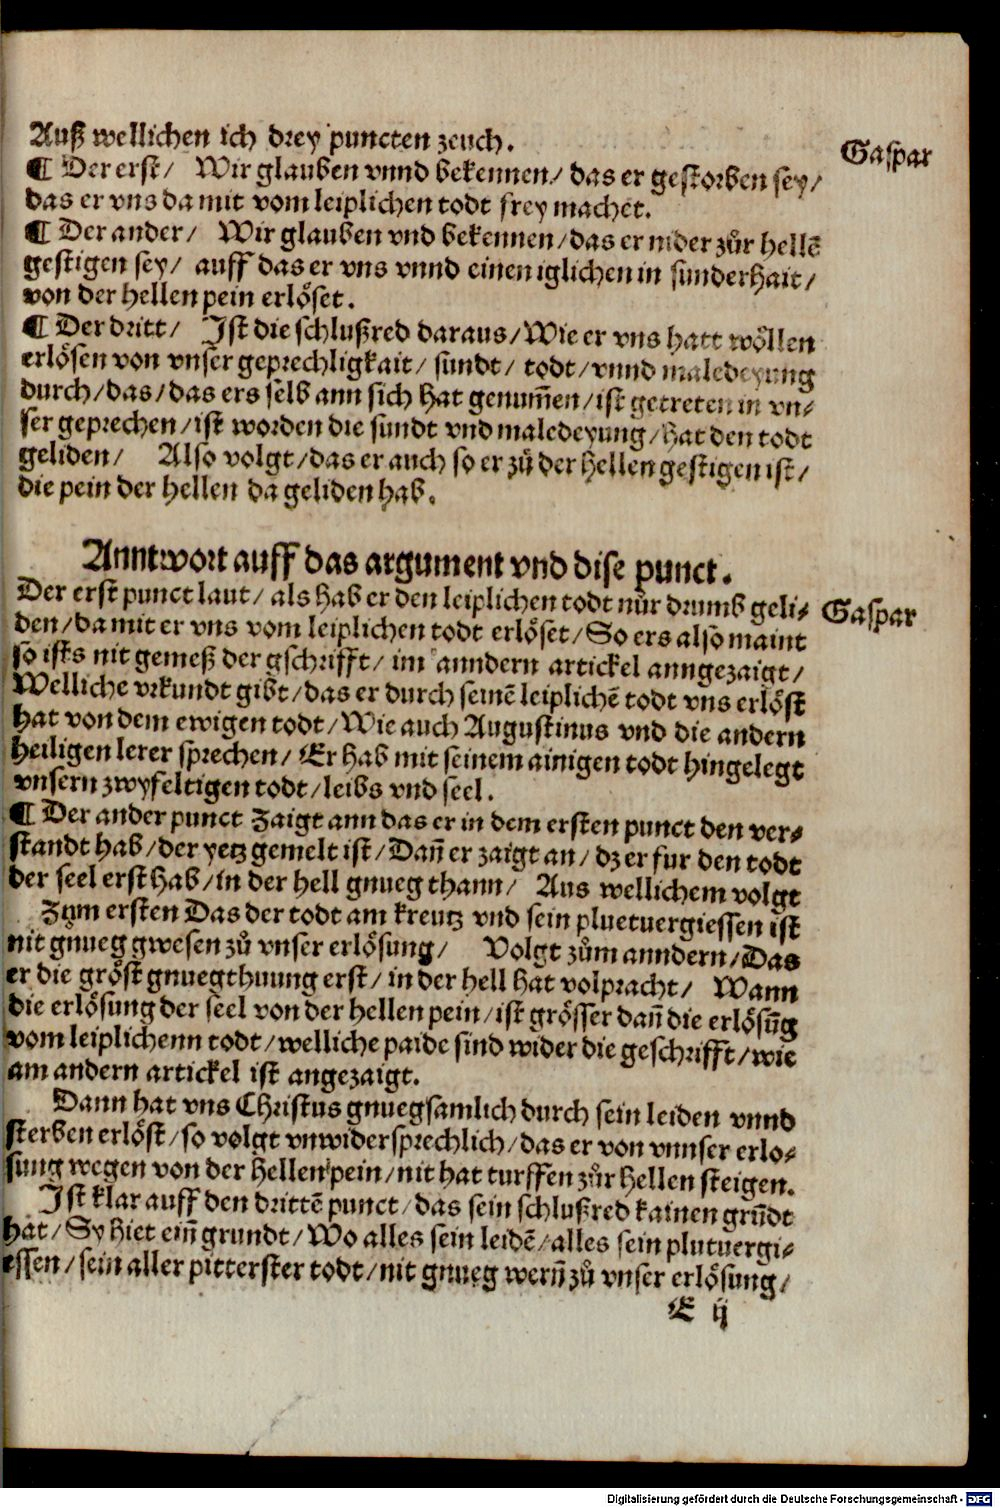 Auß wellichen ich drey puncten zeuch.
Gaspar
¶ Der erst/ Wir glauben vnnd bekennen/ das er gestorben sey/
das er vns da mit vom leiplichen todt frey machet.
¶ Der ander/ Wir glauben vnd bekennen/das er nider zůr hellē
gestigen sey/ auff das er vns vnnd einen iglichen in sunderhait/
von der hellen pein erlöset.
¶ Der dritt/ Ist die schlußred daraus/Wie er vns hatt wöllen
erlösen von vnser geprechligkait/ sundt/ todt/vnnd maledeyung
durch/das/das ers selb ann sich hat genum̄en/ist getreten in vn⸗
ser geprechen/ist worden die sundt vnd maledeyung/hat den todt
geliden/ Also volgt/das er auch so er zů der hellen gestigen ist/
die pein der hellen da geliden hab.
Anntwort auff das argument vnd dise punct.
Der erst punct laut/ als hab er den leiplichen todt nůr drumb geli⸗
Gaspar
den/da mit er vns vom leiplichen todt erlöset/So ers also maint
so ists nit gemeß der gschrifft/ im anndern artickel anngezaigt/
Welliche vrkundt gibt/das er durch seinē leiplichē todt vns erlöst
hat von dem ewigen todt/Wie auch Augustinus vnd die andern
heiligen lerer sprechen/ Er hab mit seinem ainigen todt hingelegt
vnsern zwyfeltigen todt/leibs vnd seel.
¶ Der ander punct Zaigt ann das er in dem ersten punct den ver⸗
standt hab/der yetz gemelt ist/Dan̄ er zaigt an/ dz er fur den todt
der seel erst hab/in der hell gnueg thann/ Aus wellichem volgt
Zům ersten Das der todt am kreutz vnd sein pluetuergiessen ist
nit gnueg gwesen zů vnser erlösung/ Volgt zům anndern/Das
er die gröst gnuegthuung erst/in der hell hat volpracht/ Wann
die erlösung der seel von der hellen pein/ist grösser dan̄ die erlösūg
vom leiplichenn todt/welliche paide sind wider die geschrifft/wie
am andern artickel ist angezaigt.
Dann hat vns Christus gnuegsamlich durch sein leiden vnnd
sterben erlöst/so volgt vnwidersprechlich/das er von vnnser erlo⸗
sung wegen von der hellen pein/nit hat turffen zůr hellen steigen.
Ist klar auff den drittē punct/das sein schlußred kainen grūdt
hat/Sy hiet ein̄ grundt/Wo alles sein leidē/alles sein plutuergi⸗
essen/sein aller pitterster todt/nit gnueg wern̄ zů vnser erlösung/
E ij
Digitalisierung gefördert durch die Deutsche Forschungsgemeinschaft - DFG